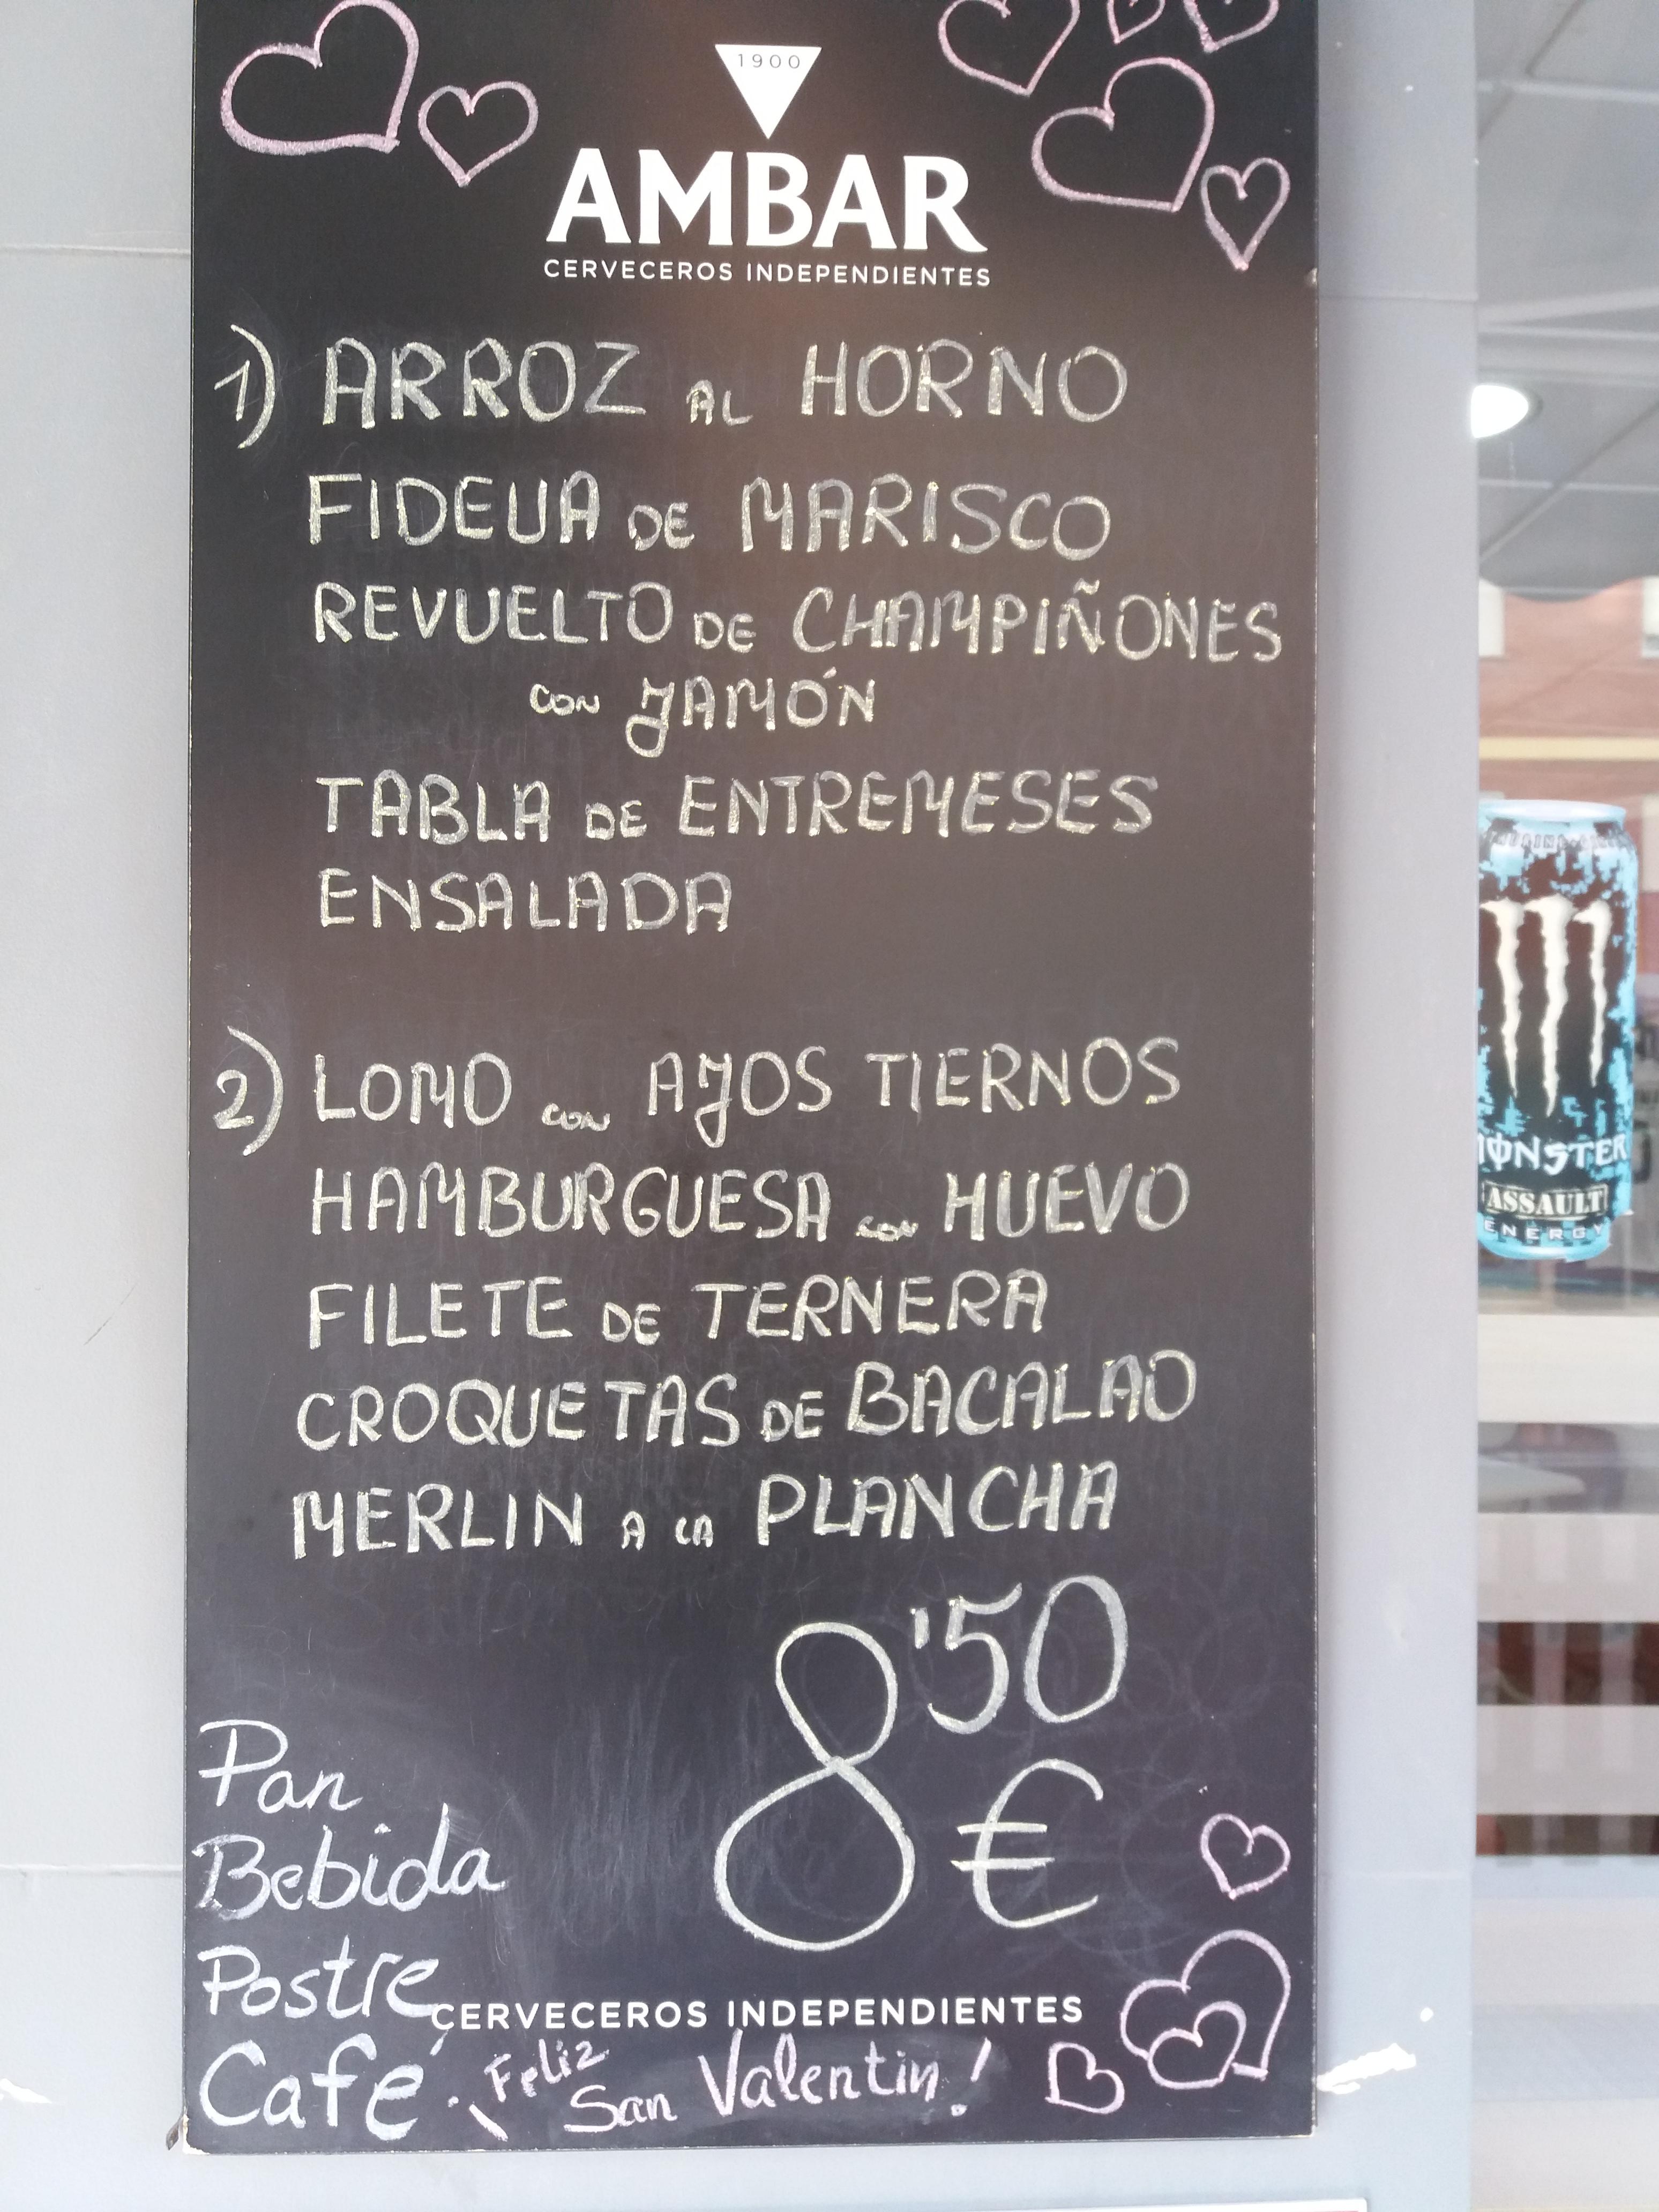 1900
AMBAR
CERVECEROS INDEPENDIENTES
1) ARROZ AL HORNO
FIDEUA DE MARISCO
REVUELTO DE CHAMPIÑONES
CON JAMÓN
TABLA DE ENTREMESES
ENSALADA
2) LOMO CON AJOS TIERNOS
HAMBURGUESA CON HUEVO
FILETE DE TERNERA
CROQUETAS DE BACALAO
MERLIN A LA PLANCHA
8'50
€
Pan
Bebida
Postre
Café
CERVECEROS INDEPENDIENTES
¡Feliz
San Valentin!
MONSTER
ASSAULT
ENERGY